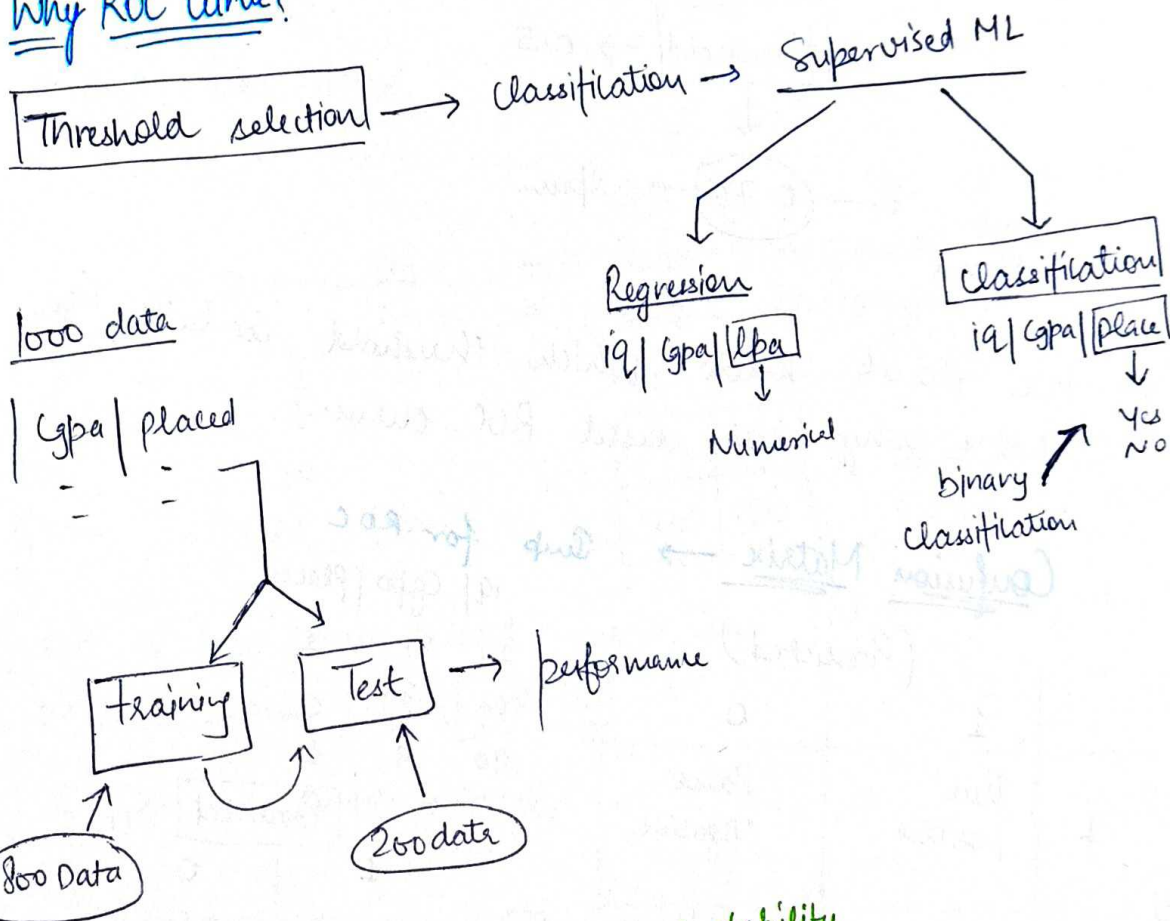 Why ROC Curve?
Threshold selection → Classification → Supervised ML
Regression
iq | Cgpa | lpa
↓
Numerical
Classification
iq | Cgpa | place
↓
Yes
NO
binary
Classification
1000 data
| Cgpa | placed
training
Test → performance
800 Data
200 data